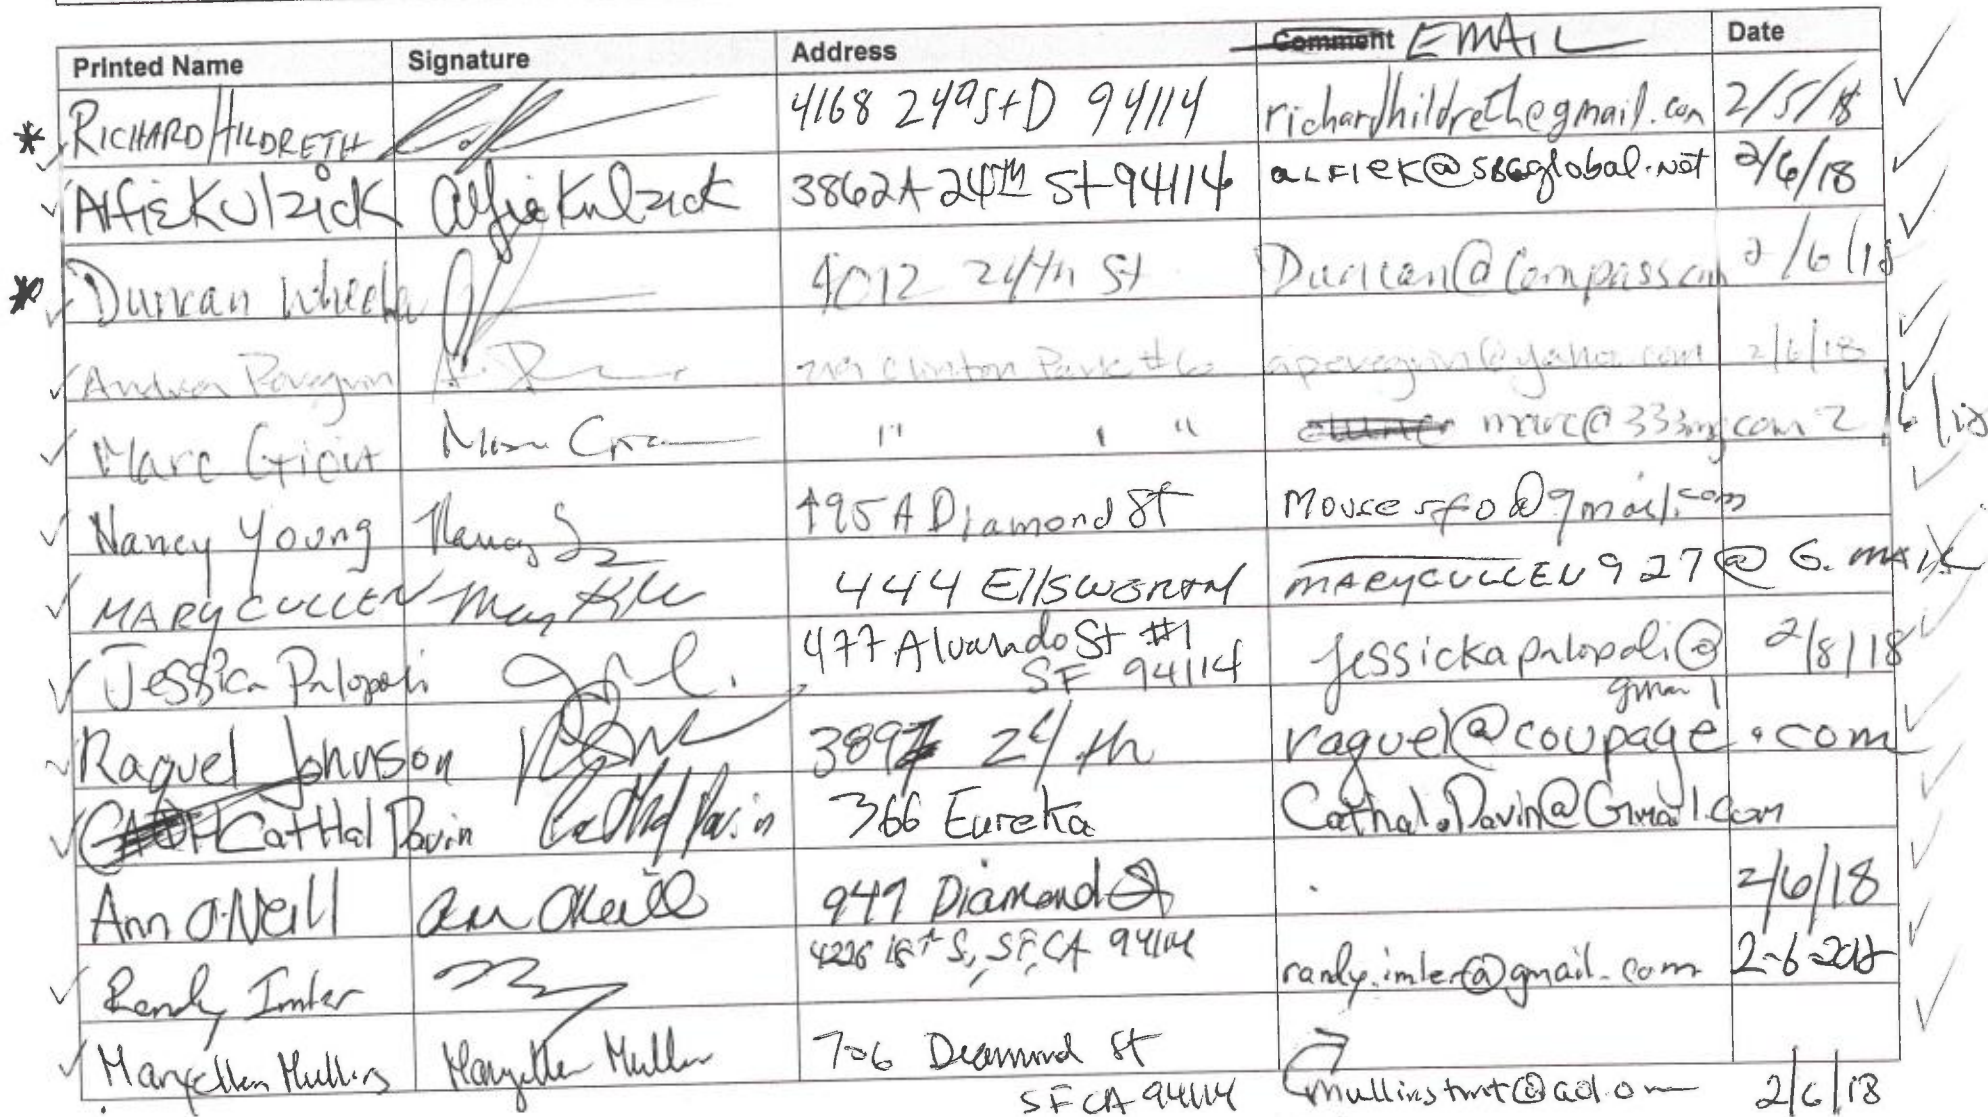 Printed Name Signature Address Comment EMAIL Date
RICHARD HILDRETH 4168 24th St D 94114 richardhildreth@gmail.com 2/5/18
Alfie Kulzick Alfie Kulzick 3862A 24TH St 94114 ALFIEK@SBCglobal.net 2/6/18
Duncan 4012 24th St Duncan@Compass.com 2/6/18
Andrea Clinton Park #6 2/6/18
Marc " " " marc@333 .com 2/6/18
Nancy Young Nancy 495A Diamond St Mousesfo@gmail.com
MARY CULLEN Mary 444 Ellsworth MARYCULLEN927@G.MAIL
Jessica Palopoli 477 Alvarado St #1 SF 94114 jessickapalopoli@gmail 2/8/18
Raquel Johnson 24th raquel@coupage.com
Cathal Davin Cathal Davin 366 Eureka Cathal.Davin@Gmail.com
Ann O'Neill Ann O'Neill Diamond St 2/6/18
Randy Imler 4226 18th S, SF, CA 94114 randy.imler@gmail.com 2-6-2018
Maryellen Mullins Maryellen Mullins 706 Diamond St
SF CA 94114 2/6/18